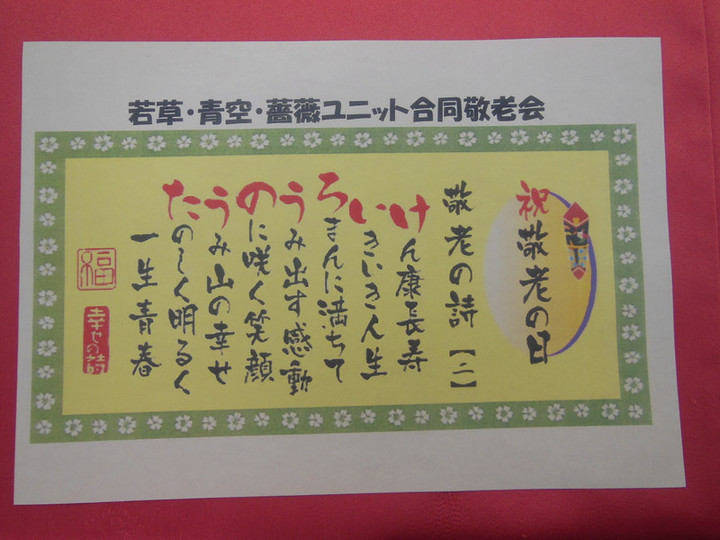 若草・青空・薔薇ユニット合同敬老会
祝敬老の日
敬老の詩【二】
けん康長寿
いきいき人生
ろまんに満ちて
うみ出す感動
のに咲く笑顔
うみ山の幸せ
たのしく明るく
一生青春
福
幸せの詩